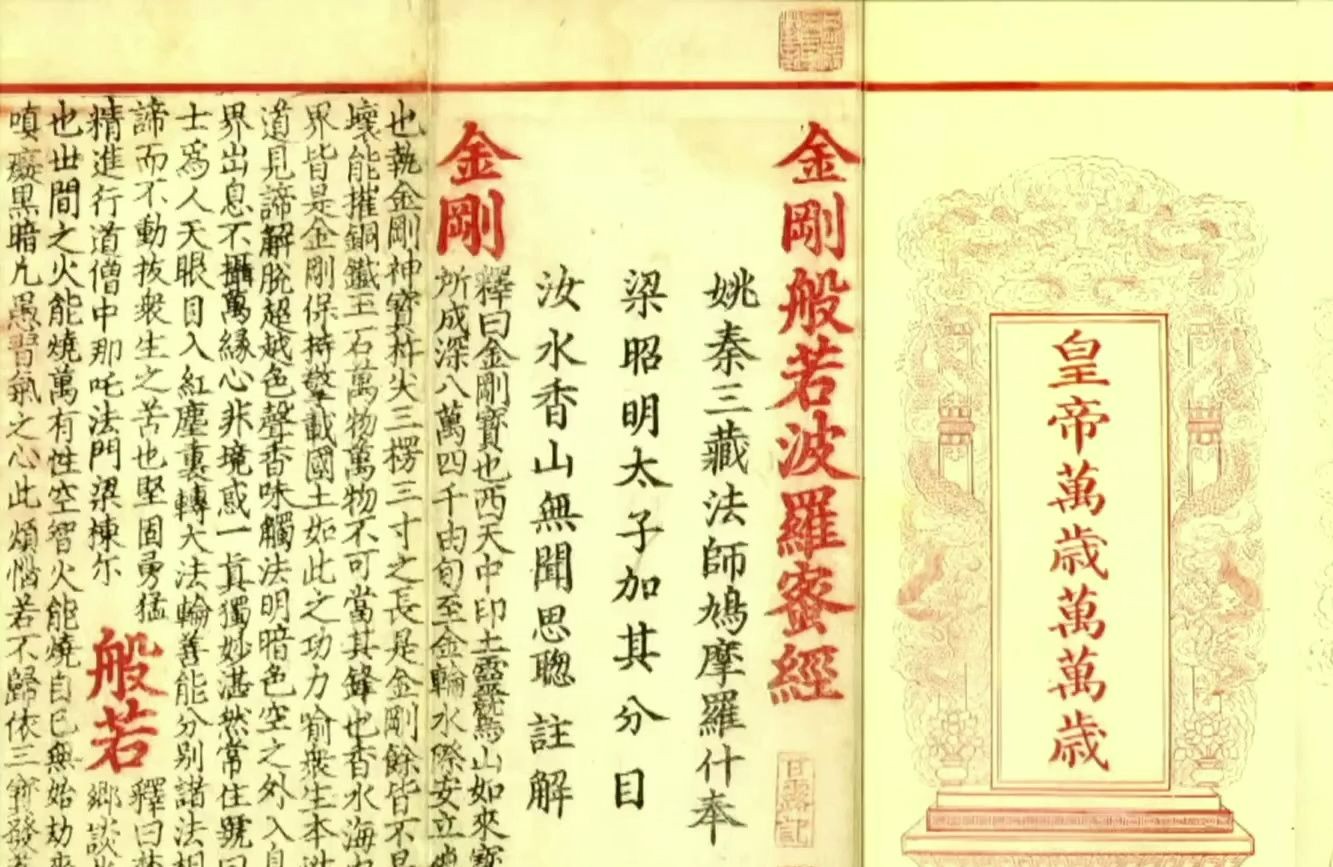 皇帝萬歲萬萬歲
金剛般若波羅蜜經
姚秦三藏法師鳩摩羅什奉
梁昭明太子加其分目
汝水香山無聞思聰 註解
金剛
釋曰金剛寶也西天中印土靈鷲山如來寶
所成深八萬四千由旬至金輪水際安立
也執金剛神寶杵尖三楞三寸之長是金剛餘皆不是
壞能摧銅鐵玉石萬物萬物不可當其鋒也香水海
界皆是金剛保持擎載國土如此之功力喻衆生本
道見諦解脫超越色聲香味觸法明暗色空之外入
界出息不攝萬緣心非境惑一眞獨妙湛然常住號曰
士爲人天眼目入紅塵裏轉大法輪善能分別諸法相
諦而不動拔衆生之苦也堅固勇猛
精進行道僧中那吒法門梁棟尔
般若
釋曰梵
鄉談
也世間之火能燒萬有性空智火能燒自己無始劫來
嗔癡黑暗凡愚習氣之心此煩惱若不歸依三寶發